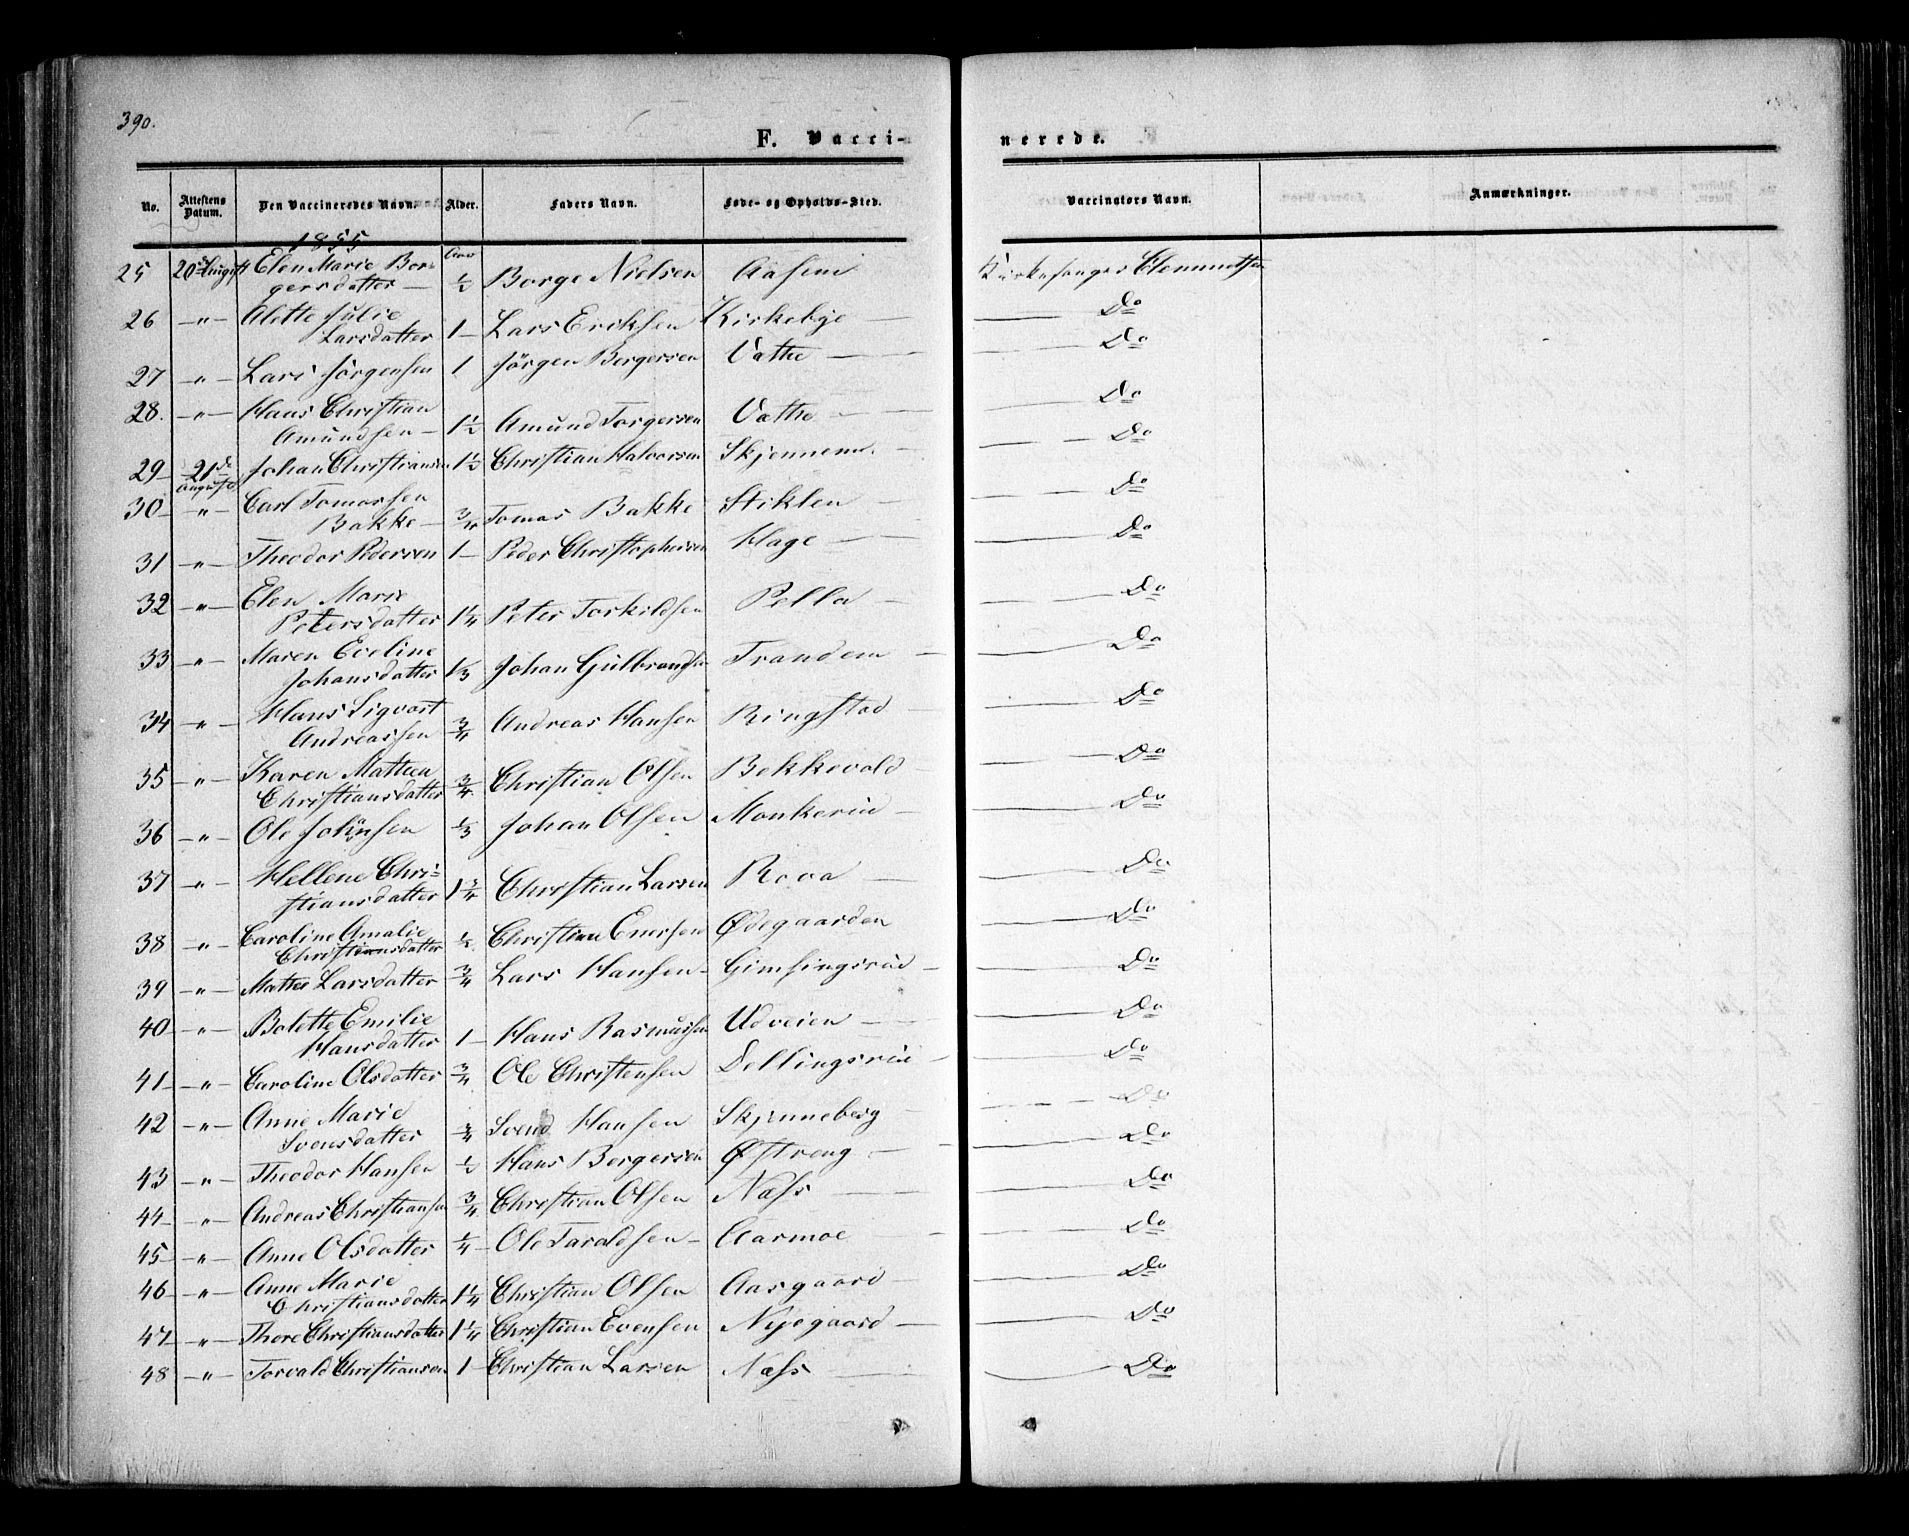 390.
F. Vacci-
nerede.
No.
Attestens Datum.
Den Vaccineredes Navn.
Alder.
Faders Navn.
Føde- og Opholds-Sted.
Vaccinators Navn.
Anmærkninger.
1855
25 20de August Elen Marie Bor-
gersdatter — ½ Borge Nielsen Aaseni Kirkesanger Clemmetsen
26 —„— Alette Julie
Larsdatter 1 — Lars Eriksen Kirkebye — Do
27 —„— Lars Jörgensen 1 Jörgen Borgersen Vathe — Do
28. —„— Hans Christian
Amundsen — 1½ Amund Torgersen Vathe — Do
29 — 21de August Johan Christiansen 1½ Christian Halvorsen Skjennem. Do
30 —„— Carl Tomassen
Bakke — ¾ Tomas Bakke Stiklen — Do
31 —„— Theodor Pedersen 1 — Peder Christophersen Hage — Do
32 —„— Elen Marie
Petersdatter 1¼ Peter Torkildsen Pella — Do
33 —„— Maren Eveline
Johansdatter 1⅓ Johan Gulbrandsen Trandem — Do
34 —„— Hans Sigvart
Andreassen ¾ Andreas Hansen Ringstad Do
35 —„— Karen Mathea
Christiansdatter ¾ Christian Olsen Bekkevold — Do
36 —„— Ole Johnsen ⅓ Johan Olsen Monkerud — Do
37 —„— Hellene Chri-
stiansdatter 1¾ Christian Larsen Rova — Do
38 —„— Caroline Amalie
Christiansdatter ½ Christian Enersen Ødegaarden Do
39 —„— Mathea Larsdatter ¾ Lars Hansen — Gimsingsrud — Do
40 —„— Bolette Emilie
Hansdatter 1 — Hans Rasmussen Udveien — Do
41 —„— Caroline Olsdatter ¾ Ole Christensen Dellingsrud — Do
42 —„— Anne Marie
Svensdatter ¾ Svend Hansen Skjenneberg Do
43 —„— Theodor Hansen ½ Hans Bergersen Østreng — Do
44 —„— Andreas Christiansen ¾ Christian Olsen Næss — Do
45 —„— Anne Olsdatter ¼ — Ole Taraldsen — Aarmoe — Do
46 —„— Anne Marie
Christiansdatter 1¼ Christian Olsen Aasgaard — Do
47 —„— Thore Christiansdatter 1¼ Christian Evensen Nyegaard — Do
48 —„— Torvald Christiansen 1 — Christian Larsen Næss — Do